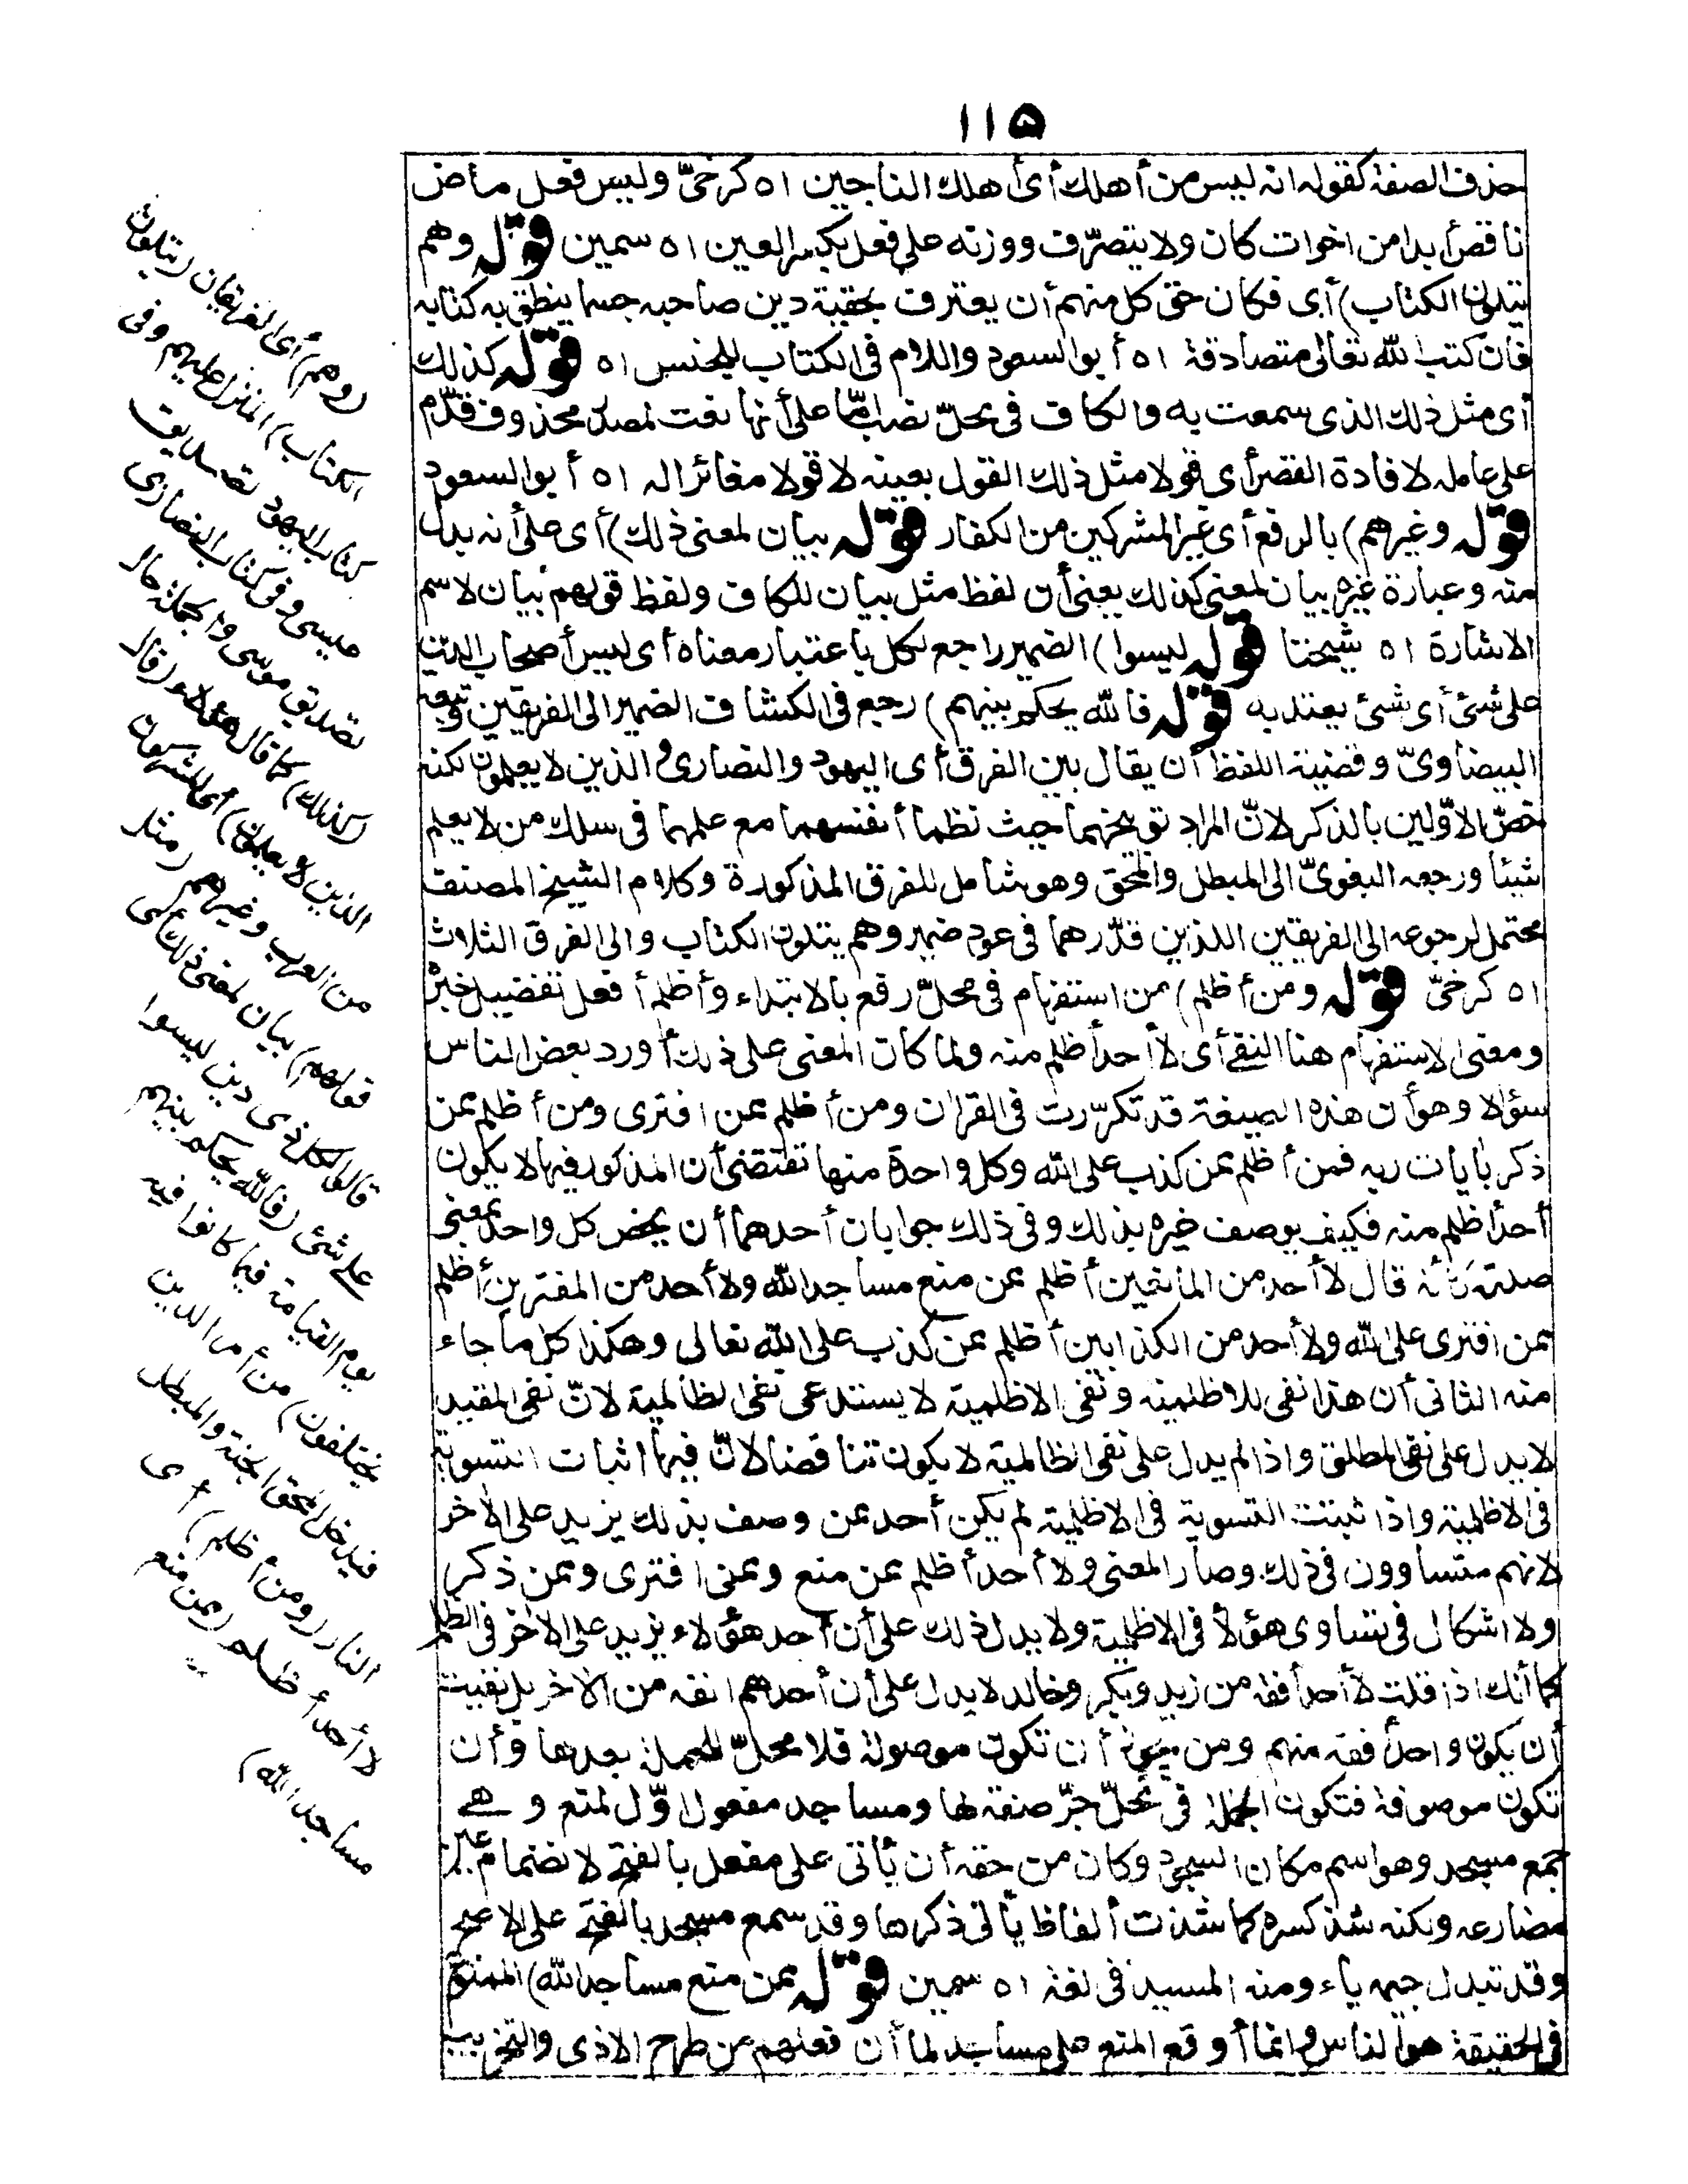 ١١٥
حذف الصفة كقوله انه ليس من أهلك أى أهلك الناجين اه كرخىّ وليس فعل ماض
ناقص أبدا من اخوات كان ولا يتصرّف ووزنه على فعل بكسر العين اه سمين قوله وهم
يتلون الكتاب) أى فكان حق كل منهم أن يعترف بحقية دين صاحبه حسبما ينطق به كتابه
فان كتب الله تعالى متصادقة اه أبو السعود واللام فى الكتاب للجنس اه قوله كذلك
أى مثل ذلك الذى سمعت به والكاف فى محلّ نصب امّا على أنها نعت لمصدر محذوف قدّم
على عامله لافادة القصر أى قولا مثل ذلك القول بعينه لا قولا مغائرا له اه أبو السعود
قوله وغيرهم) بالرفع أى غير المشركين من الكفار قوله بيان لمعنى ذلك) أى على أنه بدل
منه وعبارة غيره بيان لمعنى كذلك يعنى أن لفظ مثل بيان للكاف ولفظ قولهم بيان لاسم
الاشارة اه شيخنا قوله ليسوا) الضمير راجع لكل باعتبار معناه أى ليس أصحاب الدين
على شئ أى شئ يعتد به قوله فالله يحكم بينهم) رجع فى الكشاف الضمير الى الفريقين وتبعه
البيضاوىّ وقضية اللفظ أن يقال بين الفرق أى اليهود والنصارى والذين لا يعلمون لكنه
خصّ الاوّلين بالذكر لانّ المراد توبيخهما حيث نظما أنفسهما مع علمهما فى سلك من لا يعلم
شيئا ورجعه البغوىّ الى المبطل والمحق وهو شامل للفرق المذكورة وكلام الشيخ المصنف
محتمل لرجوعه الى الفريقين اللذين قدّرهما فى عود ضمير وهم يتلون الكتاب والى الفرق الثلاث
اه كرخىّ قوله ومن أظلم) من استفهام فى محلّ رفع بالابتداء وأظلم أفعل تفضيل خبره
ومعنى الاستفهام هنا النفى أى لا أحد أظلم منه ولما كان المعنى على ذلك أورد بعض الناس
سؤالا وهو أن هذه الصيغة قد تكرّرت فى القرآن ومن أظلم ممن افترى ومن أظلم ممن
ذكر بآيات ربه فمن أظلم ممن كذب على الله وكل واحدة منها تقتضى أن المذكور فيها لا يكون
أحد أظلم منه فكيف يوصف غيره بذلك وفى ذلك جوابان أحدهما أن يخص كل واحد بمعنى
صلته كأنه قال لا أحد من المانعين أظلم ممن منع مساجد الله ولا أحد من المفترين أظلم
ممن افترى على الله ولا أحد من الكذابين أظلم ممن كذب على الله تعالى وهكذا كل ما جاء
منه الثانى أن هذا نفى للاظلمية ونفى الاظلمية لا يستدعى نفى الظالمية لانّ نفى المقيد
لا يدل على نفى المطلق واذا لم يدل على نفى الظالمية لا يكون تناقضا لانّ فيها اثبات التسوية
فى الاظلمية واذا ثبتت التسوية فى الاظلمية لم يكن أحد ممن وصف بذلك يزيد على الآخر
لانهم متساوون فى ذلك وصار المعنى ولا أحد أظلم ممن منع وممن افترى وممن ذكر
ولا اشكال فى تساوى هؤلاء فى الاظلمية ولا يدل ذلك على أن أحد هؤلاء يزيد على الآخر فى الظلم
كما أنك اذا قلت لا أحد أفقه من زيد وبكر وخالد لا يدل على أن أحدهم افقه من الآخر بل نفيت
أن يكون واحد أفقه منهم ومن يجوز أن تكون موصولة فلا محلّ للجملة بعدها وأن
تكون موصوفة فتكون الجملة فى محلّ جرّ صفة لها ومساجد مفعول اوّل لمنع وهى
جمع مسجد وهو اسم مكان السجود وكان من حقه أن يأتى على مفعل بالفتح لانضمام عين
مضارعه ولكنه شذ كسره كما شذت ألفاظ يأتى ذكرها وقد سمع مسجد بالفتح على الاصح
وقد تبدل جيمه ياء ومنه المسيد فى لغة اه سمين قوله ممن منع مساجد الله) الممنوع
فى الحقيقة هو الناس وانما أوقع المنع على مساجد لما أن فعلهم من طرح الاذى والتخريب
(وهم) أى الفريقان (يتلون
الكتاب) المنزل عليهم وفى
كتاب اليهود تصديق
عيسى وفى كتاب النصارى
تصديق موسى والجملة حال
(كذلك) كما قال هؤلاء (قال
الذين لا يعلمون) أى المشركون
من العرب وغيرهم (مثل
قولهم) بيان لمعنى ذلك أى
قالوا لكل ذى دين ليسوا
على شئ (فالله يحكم بينهم
يوم القيامة فيما كانوا فيه
يختلفون) من أمر الدين
فيدخل المحق الجنة والمبطل
النار (ومن أظلم) أى
لا أحد أظلم (ممن منع
مساجد الله)